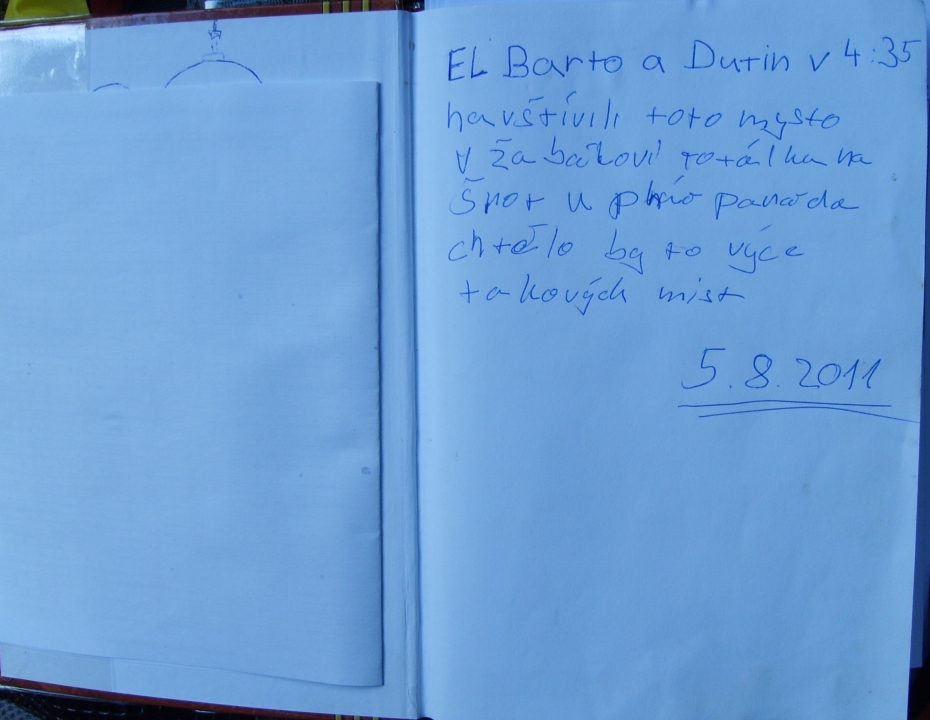 EL Barto a Dutin v 4:35
navštívili toto mysto
v žabákoví totálka na
šrot u plný paráda
chtělo by to výce
takových mist
5.8.2011